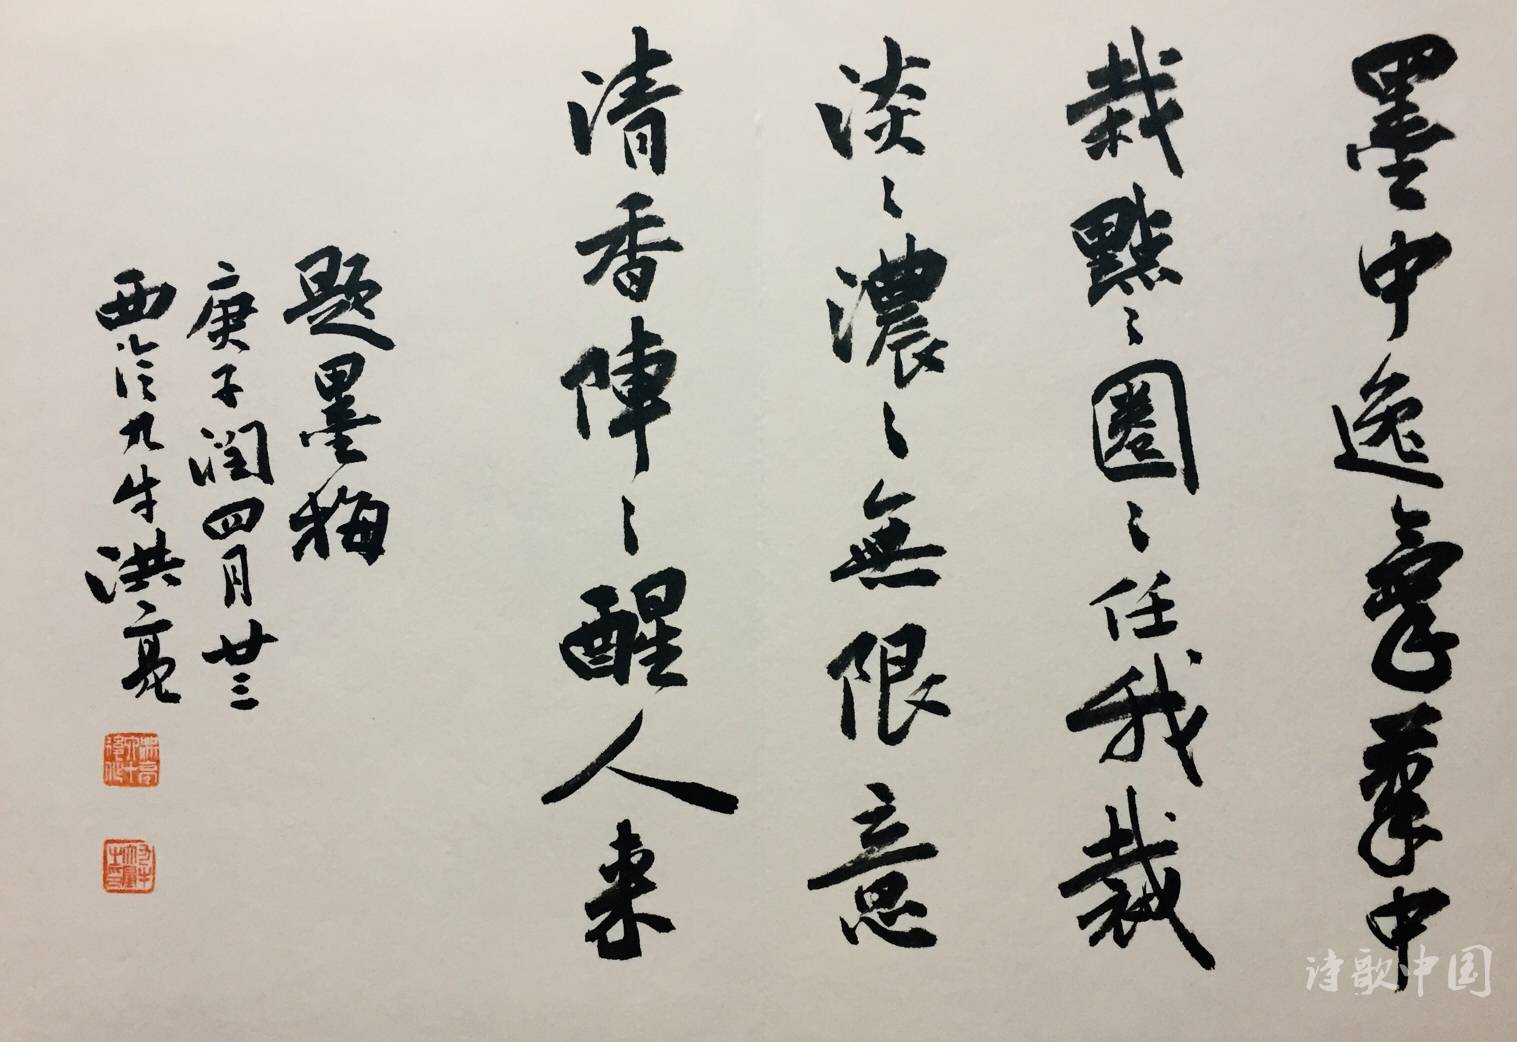 墨中逸氣筆中
栽點〻圈〻任我裁
淡〻濃〻無限意
清香陣〻醒人來
題墨梅
庚子閏四月廿三
西泠九牛洪亮
诗歌中国